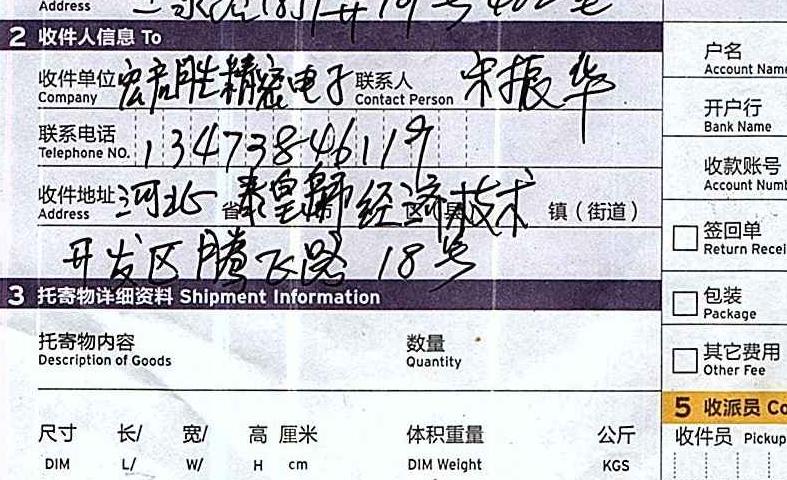 Address
2 收件人信息 To
收件单位 Company 宏启胜精密电子 联系人 Contact Person 宋振华
联系电话 Telephone NO. 13473846119
收件地址 Address 河北省秦皇岛市经济区技术 镇（街道）
开发区腾飞路 18号
3 托寄物详细资料 Shipment Information
托寄物内容 数量
Description of Goods Quantity
尺寸 长/ 宽/ 高 厘米 体积重量 公斤
DIM L/ W/ H cm DIM Weight KGS
户名
Account Name
开户行
Bank Name
收款账号
Account Numb
签回单
Return Recei
包装
Package
其它费用
Other Fee
5 收派员 Co
收件员 Pickup